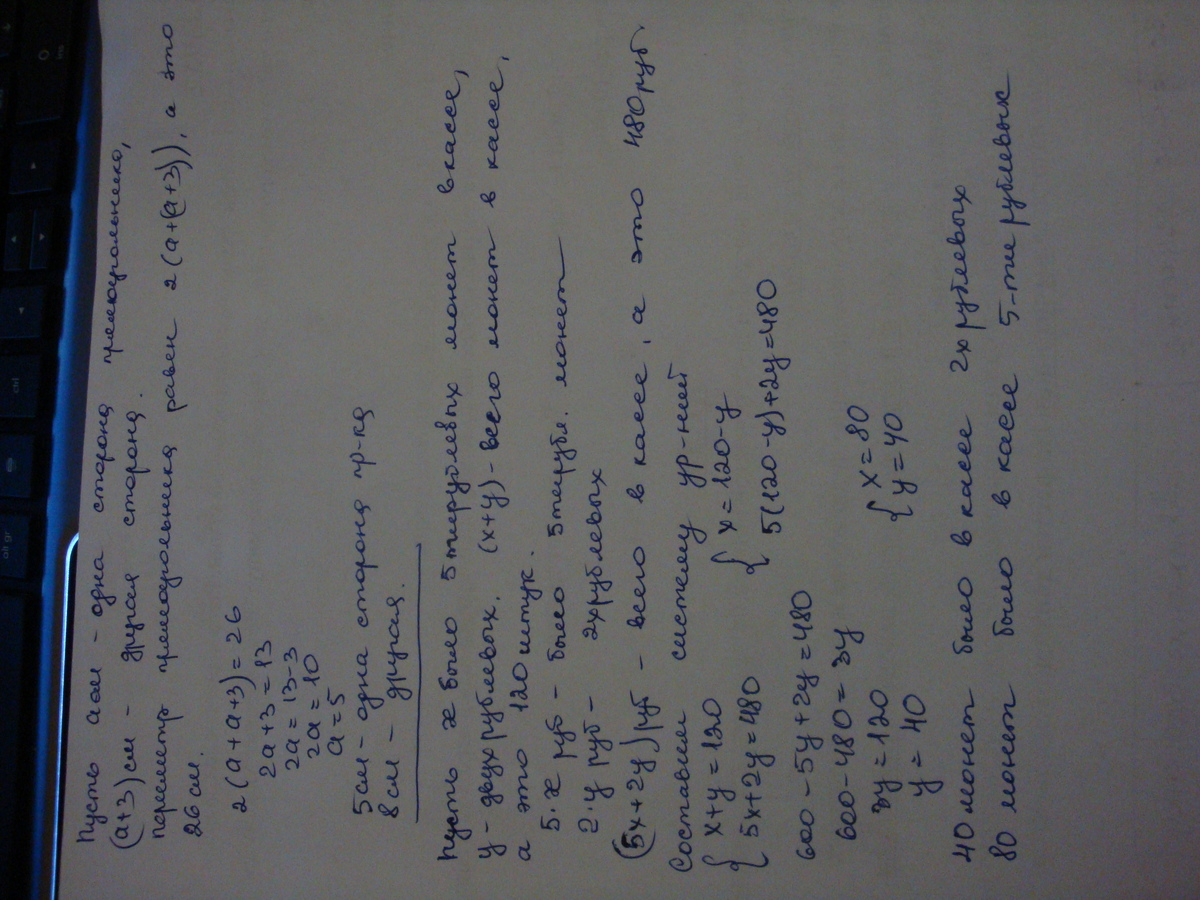 Пусть а см - одна сторона прямоугольника,
(а+3) см - другая сторона.
периметр прямоугольника равен 2(а+(а+3)), а это
26 см.
2(а+а+3)=26
2а+3=13
2а=13-3
2а=10
а=5
5 см - одна сторона пр-ка
8 см - другая.
Пусть х было 5тирублевых монет в кассе,
у - двухрублевых. (х+у) - всего монет в кассе,
а это 120 штук.
5·х руб - было 5тирубл. монет
2·у руб - 2хрублевых
(5х+2у) руб - всего в кассе, а это 480 руб.
Составим систему ур-ний
{ х+у=120 { х=120-у
5х+2у=480 5(120-у)+2у=480
600-5у+2у=480
600-480=3у
3у=120 { х=80
у=40 у=40
40 монет было в кассе 2х рублевых
80 монет было в кассе 5-ти рублевых
ctrl
alt gr
ins